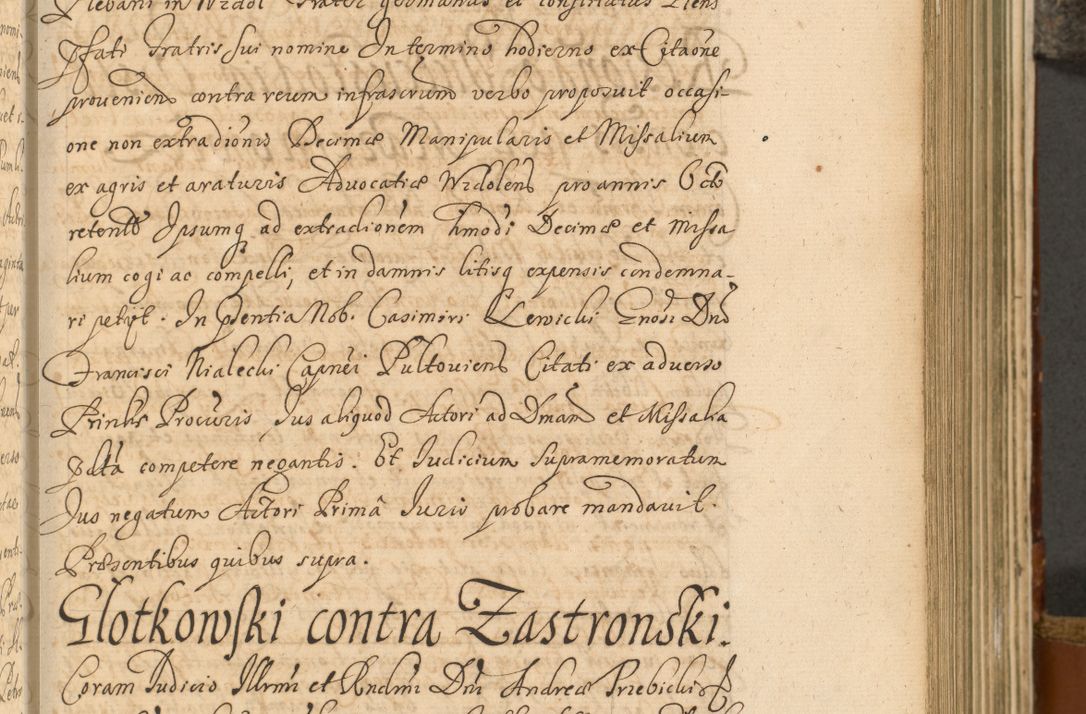 Plebani in Wzdol Frater germanus et constitutus Plens
Pfati Fratris sui nomine In termino hodierno ex Citaone
proveniens contra reum infrascrum verbo proposuit occasi-
one non extradionis Decimæ Manipularis et Missalium
ex agris et araturis Advocatiæ Wzdolens pro annis Octo
retent Ipsumq ad extradionem hmodi Decimæ et Missa
lium cogi ac compelli, et in damnis litisq expensis condemna-
ri petyt. In Psentia Nob. Casimiri Lewicki Gnosi Dni
Francisci Nialecki Capnei Pultoviens Citati ex adverso
Prinlis Procuris Jus aliquod Actori ad Dmam et Missalia
Pdta competere negantis. Et Iudicium supramemoratum
Jus negatum Actori Prima Iuris probare mandavit.
Præsentibus quibus supra.
Glotkowski contra Zastronski.
Coram Iudicio Illrmi et Rndmi Dni Andreæ Trzebicki